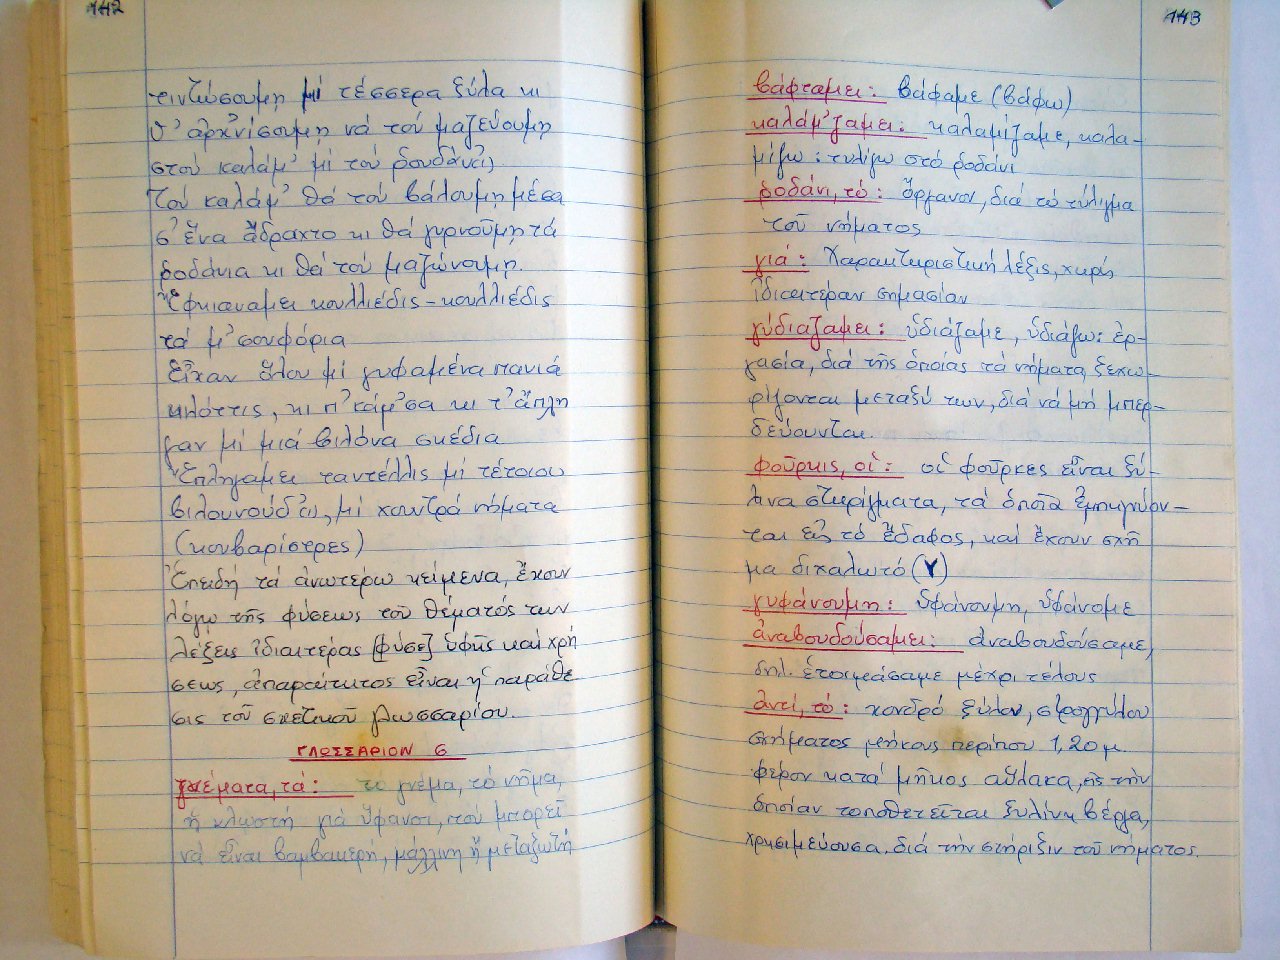 142
τιντώσουμη μί τέσσερα ξύλα κι
θ' ἀρχνίσουμη νά τού μαζεύουμη
στού καλάμ' μί τού ροδάνι)
Τού καλάμ' θά τού βάλουμη μέσα
σ' ἕνα ἄδραχτο κι θά γυρνοῦμη τά
ροδάνια κι θά τού μαζώνουμη.
Ἔφκιαναμει κουλλιέδις - κουλλιέδις
τά μ'σουφόρια
Εἶχαν ὅλου μί γυφαμένα πανιά
κιλόττις, κι π'κάμ'σα κι τ' ἄπλη
γαν μί μιά βιλόνα σκέδια
Ἔπληγαμει ταντέλλις μί τέτοιου
βιλουνούδ', μί χουντρά νήματα
(κουβαρίστρες)
Ἐπειδή τά ἀνωτέρω κείμενα, ἔχουν
λόγῳ τῆς φύσεως τοῦ θέματός των
λέξεις ἰδιαιτέρας [φύσε] ὑφῆς καί χρή
σεως, ἀπαραίτητος εἶναι ἡ παράθε
σις τοῦ σχετικοῦ γλωσσαρίου.
ΓΛΩΣΣΑΡΙΟΝ 6
γνέματα, τά: τό γνέμα, τό νῆμα,
ἤ κλωστή γιά ὕφανσι, πού μπορεῖ
νά εἶναι βαμβακερή, μάλλινη ἤ μεταξωτή
143
βάφταμει: βάφαμε (βάφω)
καλάμ'ζαμει: καλαμίζαμε, καλα-
μίζω: τυλίγω στό ροδάνι
ροδάνι, τό: ὄργανον, διά τό τύλιγμα
τοῦ νήματος
γιά: Χαρακτηριστική λέξις, χωρίς
ἰδιαιτέραν σημασίαν
γύδιαζαμει: ὑδιάζαμε, ὑδιάζω: ἐρ-
γασία, διά τῆς ὁποίας τά νήματα ξεχω-
ρίζονται μεταξύ των, διά νά μή μπερ-
δεύονται.
φοῦρκις, οἱ: οἱ φοῦρκες εἶναι ξύ-
λινα στηρίγματα, τά ὁποῖα ἐμπηγνύον-
ται εἰς τό ἔδαφος, καί ἔχουν σχῆ
μα διχαλωτό (Υ)
γυφάνουμη: ὑφάνουμη, ὑφάνομε
ἀναβουδούσαμει: ἀναβουδούσαμε,
δηλ. ἑτοιμάσαμε μέχρι τέλους
ἀντί, τό: χονδρό ξύλον, στρογγύλου
σχήματος μήκους περίπου 1,20 μ.
φέρον κατά μῆκος αὔλακα, εἰς τήν
ὁποίαν τοποθετεῖται ξυλίνη βέργα,
χρησιμεύουσα διά τήν στήριξιν τοῦ νήματος.